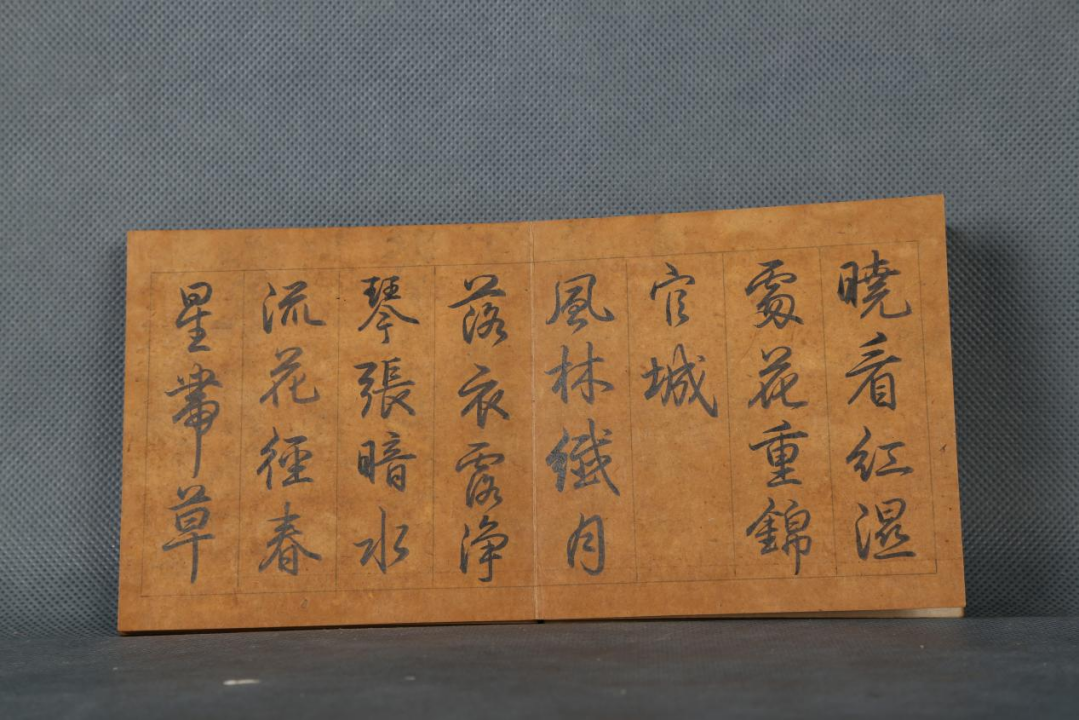 曉看紅濕
處花重錦
官城
風林纖月
落衣露淨
琴張暗水
流花徑春
星帶草